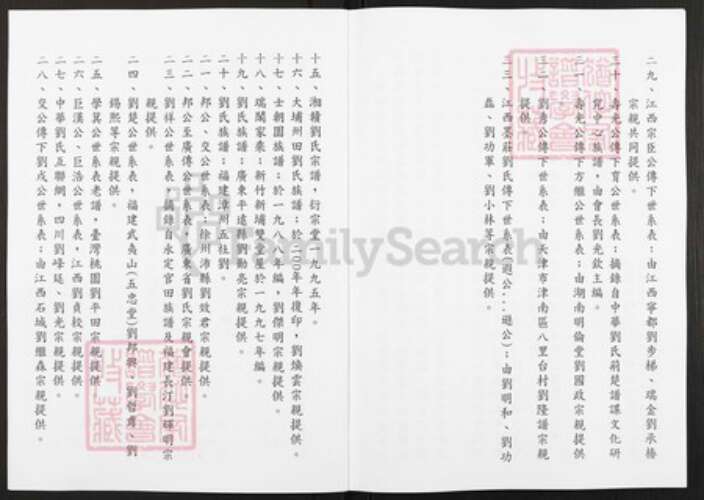 十五、湘贛劉氏宗譜，衍宗堂一九九五年。
十六、大埔州田劉氏族譜：於二00年年復印，劉煥雲宗親提供。
十七、士朝園族譜：於一九八八年編，劉傑明宗親提供。
十八、瑞閣家乘：新竹新埔雙堂屋於一九九七年編。
十九、劉氏族譜：廣東平遠縣劉勛亮宗親提供。
二十、劉氏族譜：福建漳州五柱劉。
二一、邦公、交公世系表：徐州沛縣劉敦君宗親提供。
二二、邦公至廣傳公世系表：廣東省劉氏宗親會提供。
二三、劉祥公世系表，摘錄自永定官田族譜及福建長汀劉暉明宗
親提供。
二四、劉楚公世系表，福建武夷山(五忠堂)劉邦興、劉哲壽、劉
錫熙等宗親提供。
二五、學箕公世系表老譜，臺灣桃園劉平田宗親提供。
二六、巨漢公、巨浩公世系表，江西劉貞校宗親提供。
二七、中華劉氏互聯網，四川劉峰延、劉光宗親提供。
二八、交公傳下劉戍公世系表：由江西石城劉繼森宗親提供。
二九、江西宗臣公傳下世系表：由江西寧都劉步梯、瑞金劉承椿
宗親共同提供。
三十、壽光公傳下育公世系表：摘錄自中華劉氏荊楚譜諜文化研
究中心族譜，由會長劉光欽主編。
壽光公傳下方繼公世系表：由湖南明倫堂劉國政宗親提供
劉秀公傳下世系表：由天津市津南區八里台村劉隆譜宗親
提供。
江西墨莊劉氏傳下世系表(遐公...遜公)：由劉明和、劉功
磊、劉功軍、劉小林等宗親提供。
FamilySearch